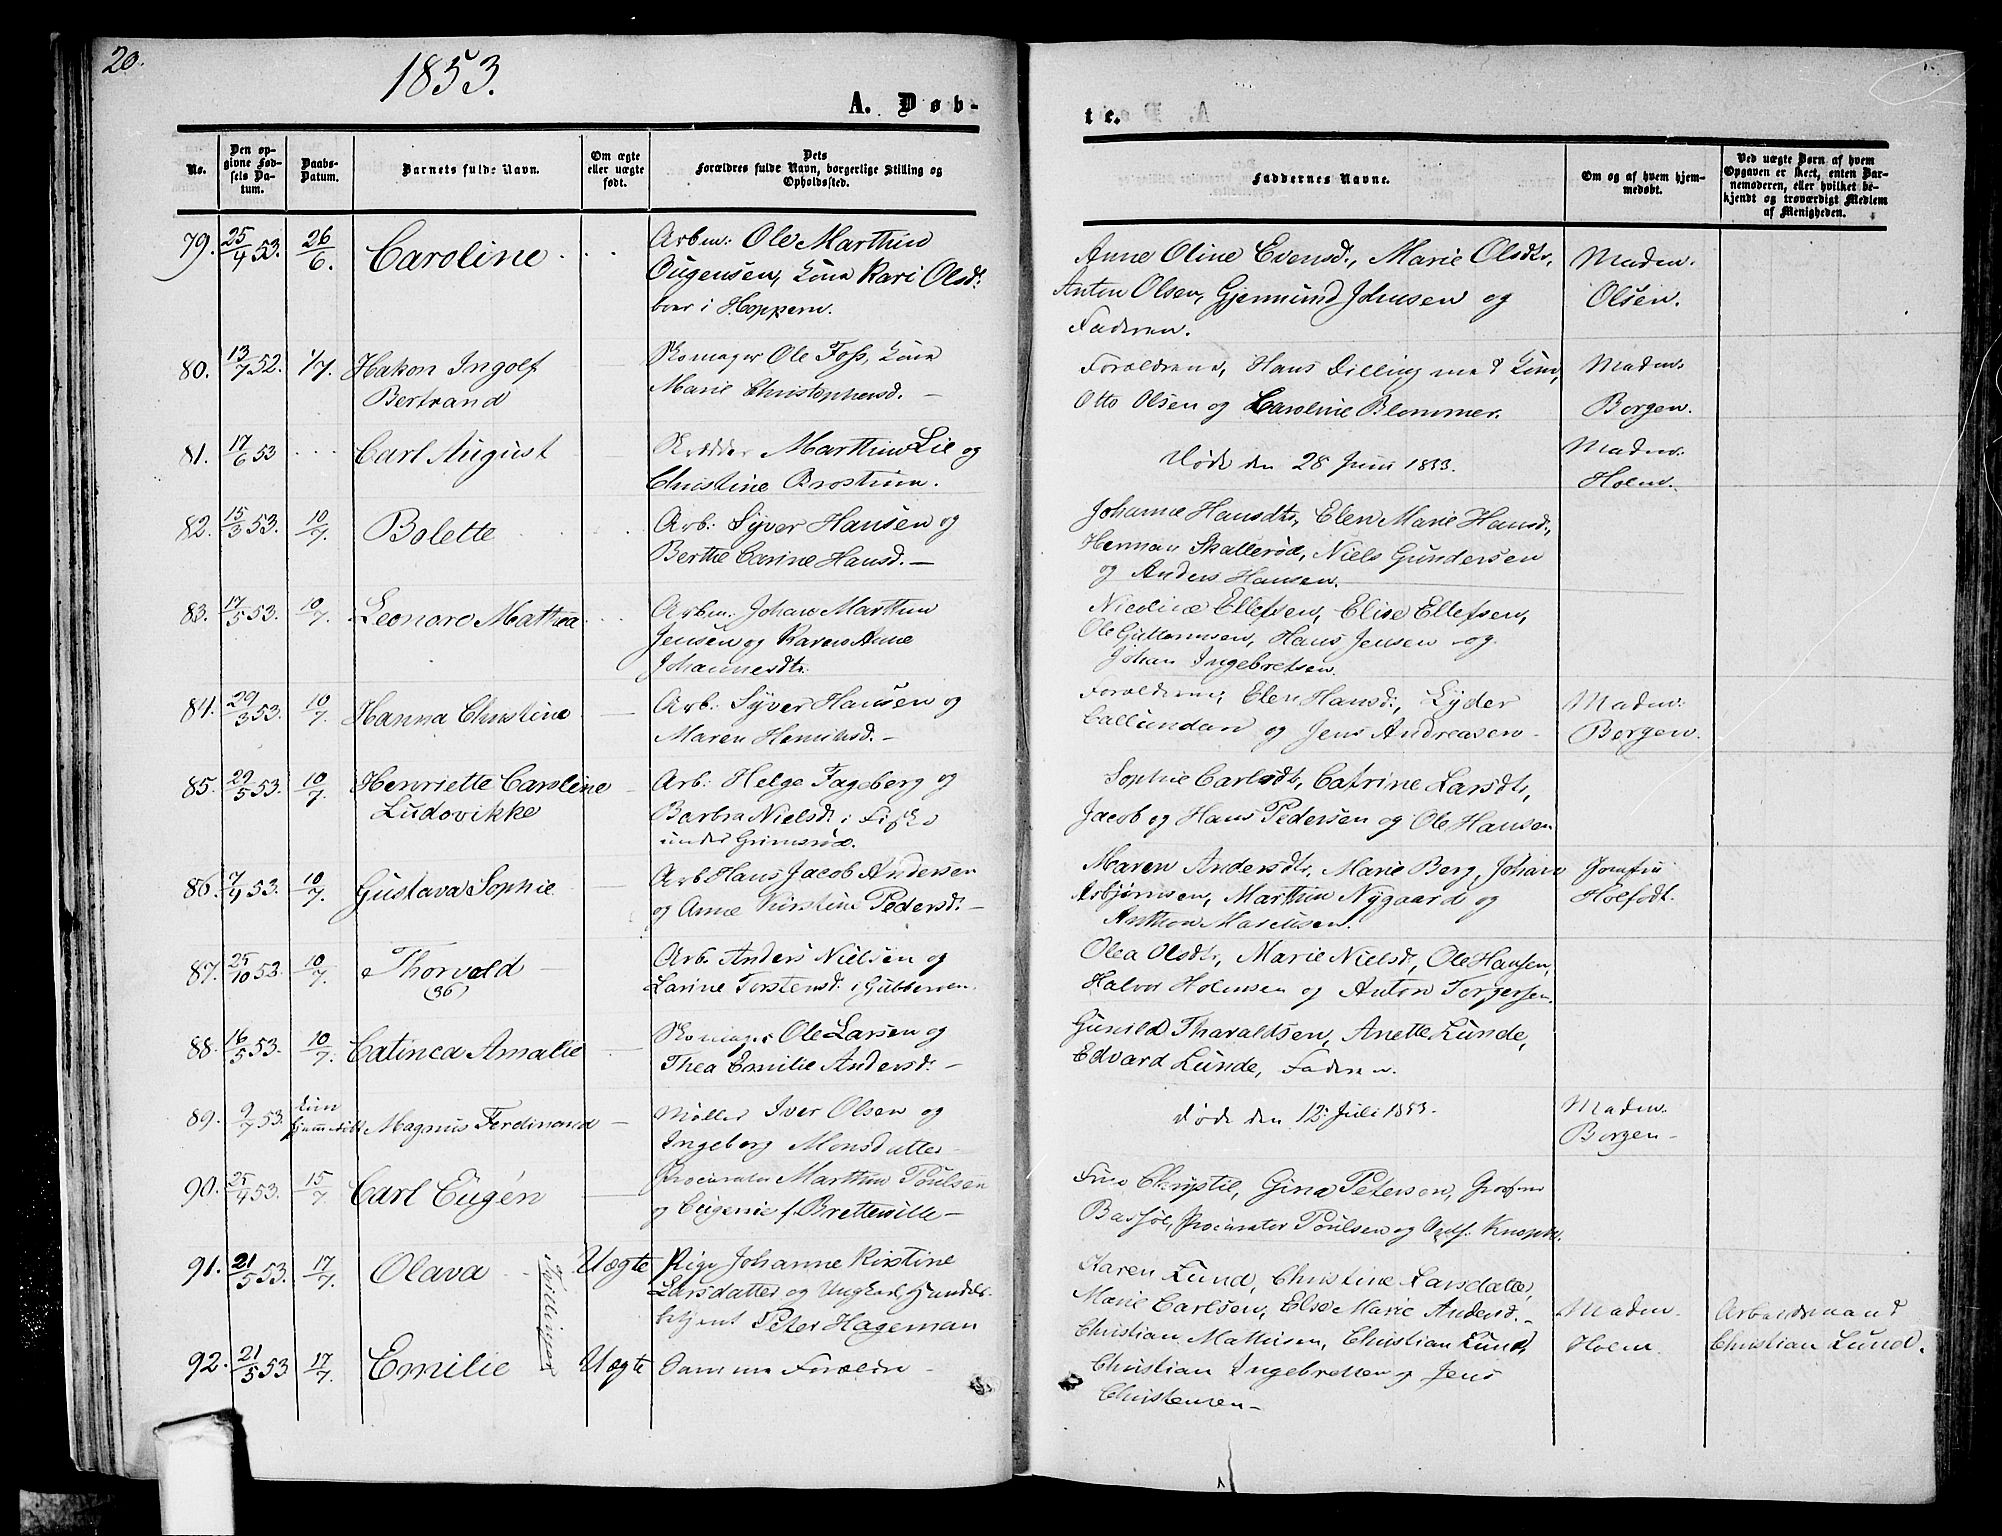 20.
1853.
A. Døb-
No.
Den op-
givne Fød-
sels Da-
tum.
Daabs-
Datum.
Barnets fulde Navn.
Om ægte
eller uægte
født.
Dets
Forældres fulde Navn, borgerlige Stilling og
Opholdssted.
79. 25/4 53. 26/6. Caroline
Arbm: Ole Marthin
Eugensen, Kone Kari Olsd:
boer i Hoppern.
80. 13/7 52. 1/7. Hakon Ingolf
Bertrand
Skomager Ole Foss, Kone
Marie Christophersd. —
81. 17/6 53 Carl August
Skrædder Marthin Lie og
Christine Brostrøm.
82. 15/3 53. 10/7. Bolette
Arb: Syver Hansen og
Berthe Carine Hansd. —
83. 17/5 53. 10/7. Leonore Mathea
Arbm: Johan Marthin
Jensen og Karen Anne
Johannesdtr.
84. 29/3 53. 10/7. Hanna Christine
Arb: Syver Hansen og
Maren Henriksd. —
85. 29/5 53. 10/7. Henriette Caroline
Ludovikke
Arb: Helge Fageberg og
Barbra Nielsd: i
under Grimsrød.
86. 7/4 53. 10/7. Gustava Sophie
Arb Hans Jacob Andersen
og Anne Kirstine Pedersd: —
87. 25/10 52. 10/7. Thorvald
(36)
Arb. Anders Nielsen og
Larine Torstensd: i Gubberoen
88. 16/5 53. 10/7. Catinca Amalie
Skomager Ole Larsen og
Thea Emilie Andersd: —
89. 9/7 53. kun
hjemmedøbt Magnus Ferdinand
Møller Iver Olsen og
Ingeborg Monsdatter
90. 25/4 53. 15/7. Carl Eugén
Procurator Marthin Poulsen
og Eugenie f. Bretteville —
91. 21/5 53. 17/7. Olava Uægte
Pige Johanne Kirstine
Larsdatter og Ungkarl, Handels-
betjent Peter Hageman
Tvillinger
92. 21/5 53 17/7. Emilie Uægte Samme Forældre —
te.
Faddernes Navne.
Om og af hvem hjem-
medøbt.
Ved uægte Børn af hvem
Opgaven er skeet, enten Bar-
nemoderen, eller hvilket be-
kjendt og troværdigt Medlem
af Menigheden.
Anne Oline Evensd:, Marie Olsdtr,
Anton Olsen, Gjermund Johnsen og
Faderen.
Madm.
Olsen.
Forældrene, Hans Dilling med Kone,
Otto Olsen og Caroline Blommer.
Madm.
Borgen.
Døde den 28 Juni 1853.
Madm.
Holm.
Johanne Hansdtr, Elen Marie Hansd:,
Herman Skallerød, Niels Gundersen
og Anders Hansen.
Nicoline Ellefsen, Elise Ellefsen,
Ole Guttormsen, Hans Jensen og
Johan Ingebretsen.
Forældrene, Elen Hansd:, Lyder
Callundan og Jens Andreasen
Madm:
Borgen.
Sophie Carlsdtr, Catrine Larsdtr,
Jacob og Hans Pedersen og Ole Hansen
Maren Andersdtr, Marie Berg, Johan
Asbjørnsen, Marthin Nygaard og
Anthon Marcusen.
Jomfru
Holfodt.
Olea Olsdtr, Marie Nielsd:, Ole Hansen,
Halvor Holmsen og Anton Torgersen.
Gunild Tharaldsen, Anette Lunde,
Edvard Lunde, Faderen.
Døde den 12: Juli 1853.
Madm.
Borgen —
Frue Chrystie, Gina Petersen,
Bassøe, Procurator Poulsen og
Karen Lund, Christine Larsdatter,
Marie Carlsen, Else Marie Andersd. —
Christian Mathisen, Christian Lund,
Christian Ingebretsen og Jens
Christensen —
Madm.
Holm.
Arbeidsmand
Christian Lund.